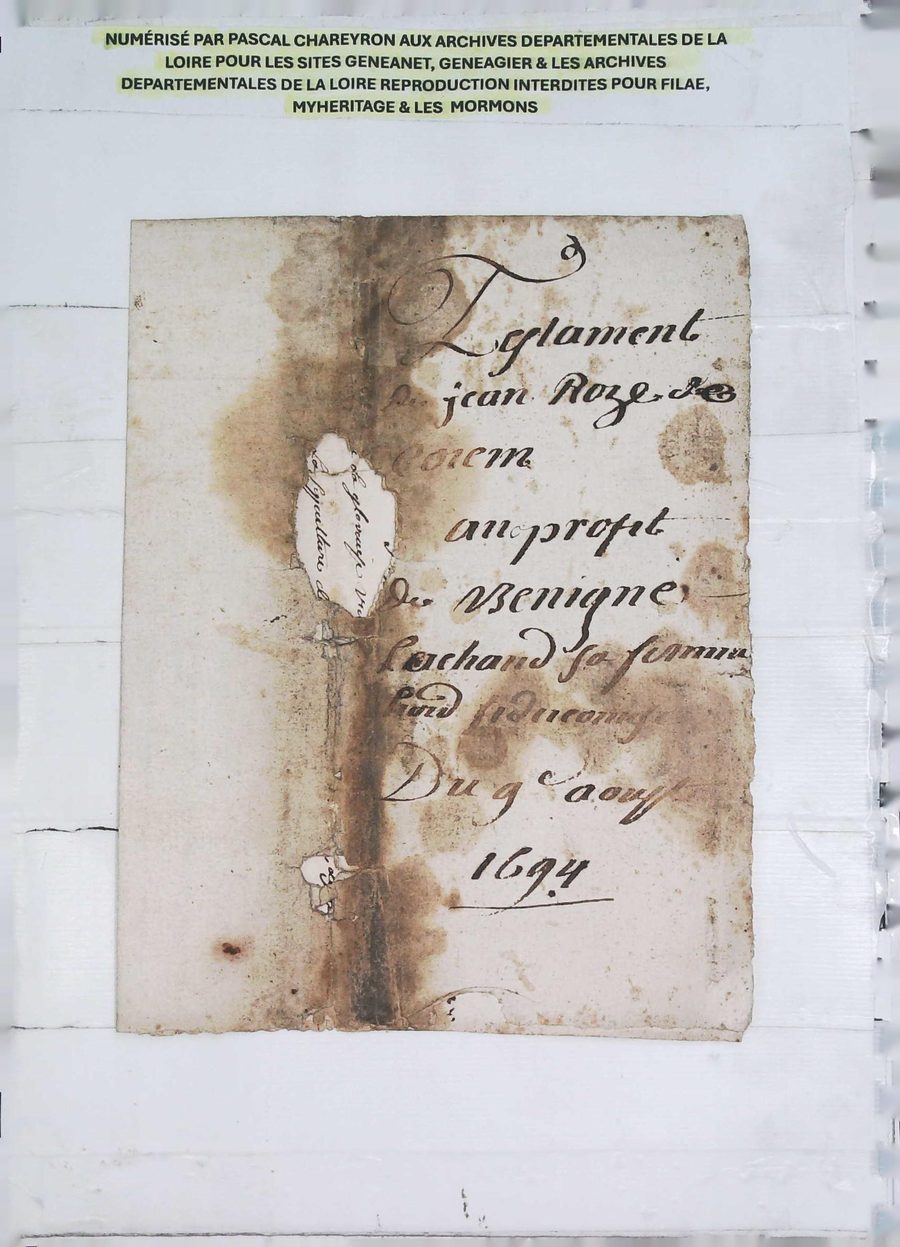 NUMÉRISÉ PAR PASCAL CHAREYRON AUX ARCHIVES DEPARTEMENTALES DE LA
LOIRE POUR LES SITES GENEANET, GENEAGIER & LES ARCHIVES
DEPARTEMENTALES DE LA LOIRE REPRODUCTION INTERDITES POUR FILAE,
MYHERITAGE & LES MORMONS
Testament
de jean Roze de
au profit
de Benigne
sa femme
Du 9e aoust
1694